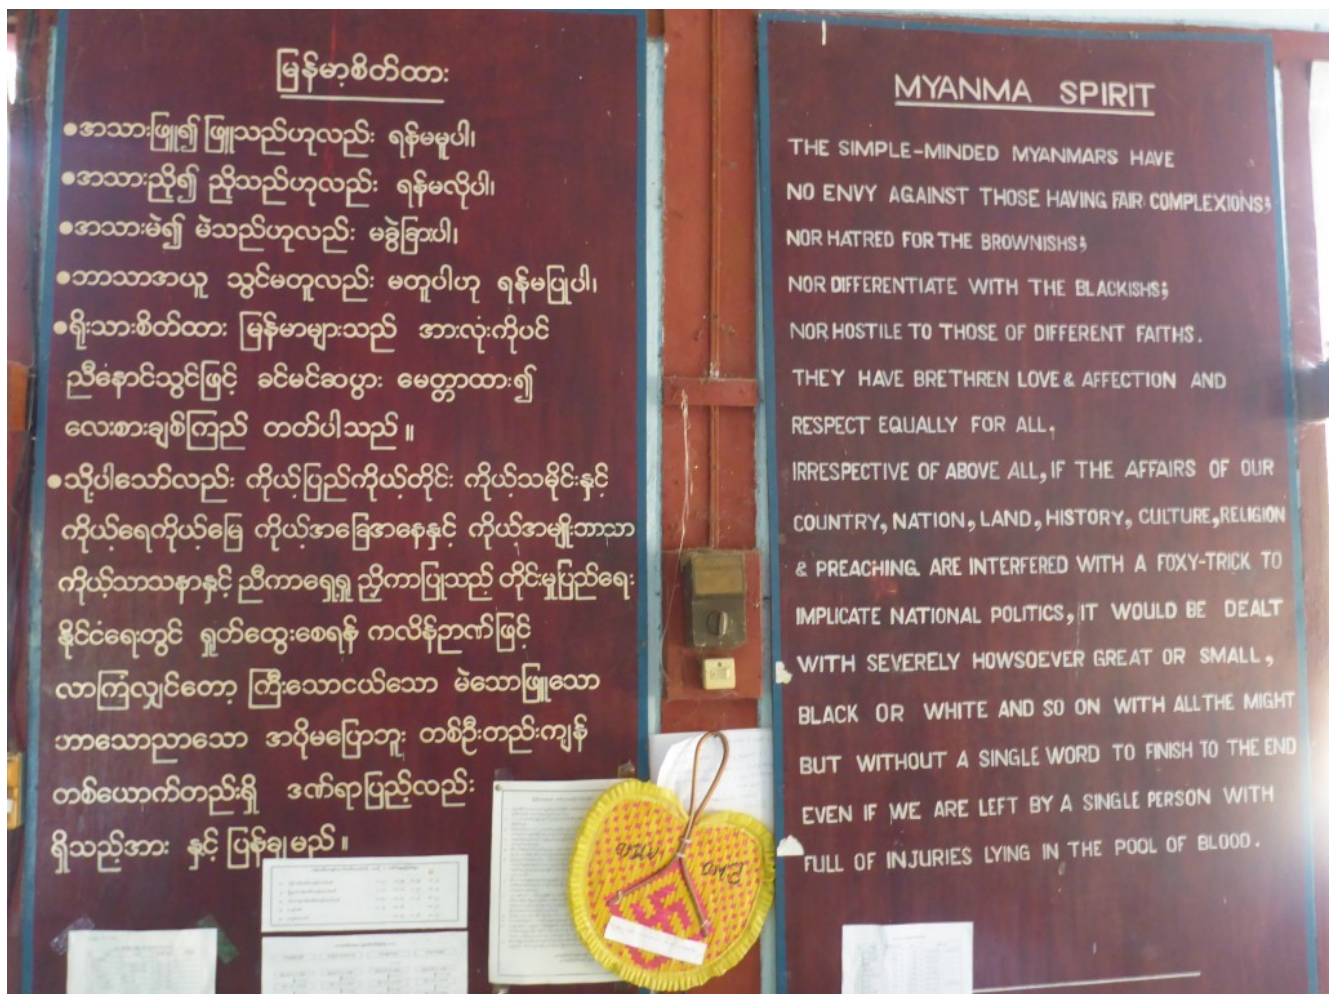 မြန်မာ့စိတ်ထား
•အသားဖြူ၍ ဖြူသည်ဟုလည်း ရန်မမူပါ၊
•အသားညို၍ ညိုသည်ဟုလည်း ရန်မလိုပါ၊
•အသားမဲ၍ မဲသည်ဟုလည်း မခွဲခြားပါ၊
•ဘာသာအယူ သွင်မတူလည်း မတူပါဟု ရန်မပြုပါ၊
•ရိုးသားစိတ်ထား မြန်မာများသည် အားလုံးကိုပင်
ညီနောင်သွင်ဖြင့် ခင်မင်ဆပွား မေတ္တာထား၍
လေးစားချစ်ကြည် တတ်ပါသည်။
•သို့ပါသော်လည်း ကိုယ့်ပြည်ကိုယ့်တိုင်း ကိုယ့်သမိုင်းနှင့်
ကိုယ့်ရေကိုယ့်မြေ ကိုယ့်အခြေအနေနှင့် ကိုယ့်အမျိုးဘာသာ
ကိုယ့်သာသနာနှင့် ညီကာရှေ့ရှု ညှိကာပြုသည် တိုင်းမှုပြည်ရေး
နိုင်ငံရေးတွင် ရှုတ်ထွေးစေရန် ကလိန်ဉာဏ်ဖြင့်
လာကြံလျှင်တော့ ကြီးသောငယ်သော မဲသောဖြူသော
ဘာသောညာသော အပိုမပြောဘူး တစ်ဦးတည်းကျန်
တစ်ယောက်တည်းရှိ ဒဏ်ရာပြည့်လည်း
ရှိသည့်အား နှင့် ပြန်ချမည်။
MYANMA SPIRIT
THE SIMPLE-MINDED MYANMARS HAVE
NO ENVY AGAINST THOSE HAVING FAIR COMPLEXIONS;
NOR HATRED FOR THE BROWNISHS;
NOR DIFFERENTIATE WITH THE BLACKISHS;
NOR HOSTILE TO THOSE OF DIFFERENT FAITHS.
THEY HAVE BRETHREN LOVE & AFFECTION AND
RESPECT EQUALLY FOR ALL.
IRRESPECTIVE OF ABOVE ALL, IF THE AFFAIRS OF OUR
COUNTRY, NATION, LAND, HISTORY, CULTURE, RELIGION
& PREACHING ARE INTERFERED WITH A FOXY-TRICK TO
IMPLICATE NATIONAL POLITICS, IT WOULD BE DEALT
WITH SEVERELY HOWSOEVER GREAT OR SMALL,
BLACK OR WHITE AND SO ON WITH ALL THE MIGHT
BUT WITHOUT A SINGLE WORD TO FINISH TO THE END
EVEN IF WE ARE LEFT BY A SINGLE PERSON WITH
FULL OF INJURIES LYING IN THE POOL OF BLOOD.